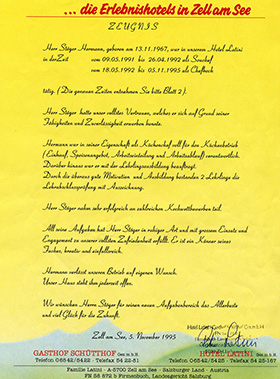 ... die Erlebnishotels in Zell am See
ZEUGNIS
Herr Stöger Hermann, geboren am 13.11.1967, war in unserem Hotel Latini
in der Zeit vom 09.05.1991 bis 26.04.1992 als Souschef
vom 18.05.1992 bis 05.11.1995 als Chefkoch
tätig. ( Die genauen Zeiten entnehmen Sie bitte Blatt 2 ).
Herr Stöger hatte unser vollstes Vertrauen, welches er sich auf Grund seiner
Fähigkeiten und Zuverlässigkeit erworben konnte.
Hermann war in seiner Eigenschaft als Küchenchef voll für den Küchenbetrieb
( Einkauf, Speisenangebot, Arbeitseinteilung und Arbeitsablauf) verantwortlich.
Darüber hinaus war er mit der Lehrlingsausbildung beauftragt.
Durch die überaus gute Motivation und Ausbildung bestanden 2 Lehrlinge die
Lehrabschlussprüfung mit Auszeichnung.
Herr Stöger nahm sehr erfolgreich an zahlreichen Kochwettbewerben teil.
All seine Aufgaben hat Herr Stöger in ruhiger Art und mit grossem Einsatz und
Engagement zu unserer vollsten Zufriedenheit erfüllt. Er ist ein Könner seines
Faches, kreativ und einfallsreich.
Hermann verlässt unseren Betrieb auf eigenen Wunsch.
Unser Haus steht ihm jederzeit offen.
Wir wünschen Herrn Stöger für seinen neuen Aufgabenbereich das Allerbeste
und viel Glück für die Zukunft.
Zell am See, 5. November 1995
GASTHOF SCHÜTTHOF Ges.m.b.H.
HOTEL LATINI Ges.m.b.H.
Familie Latini - A-5700 Zell am See - Salzburger Land - Austria